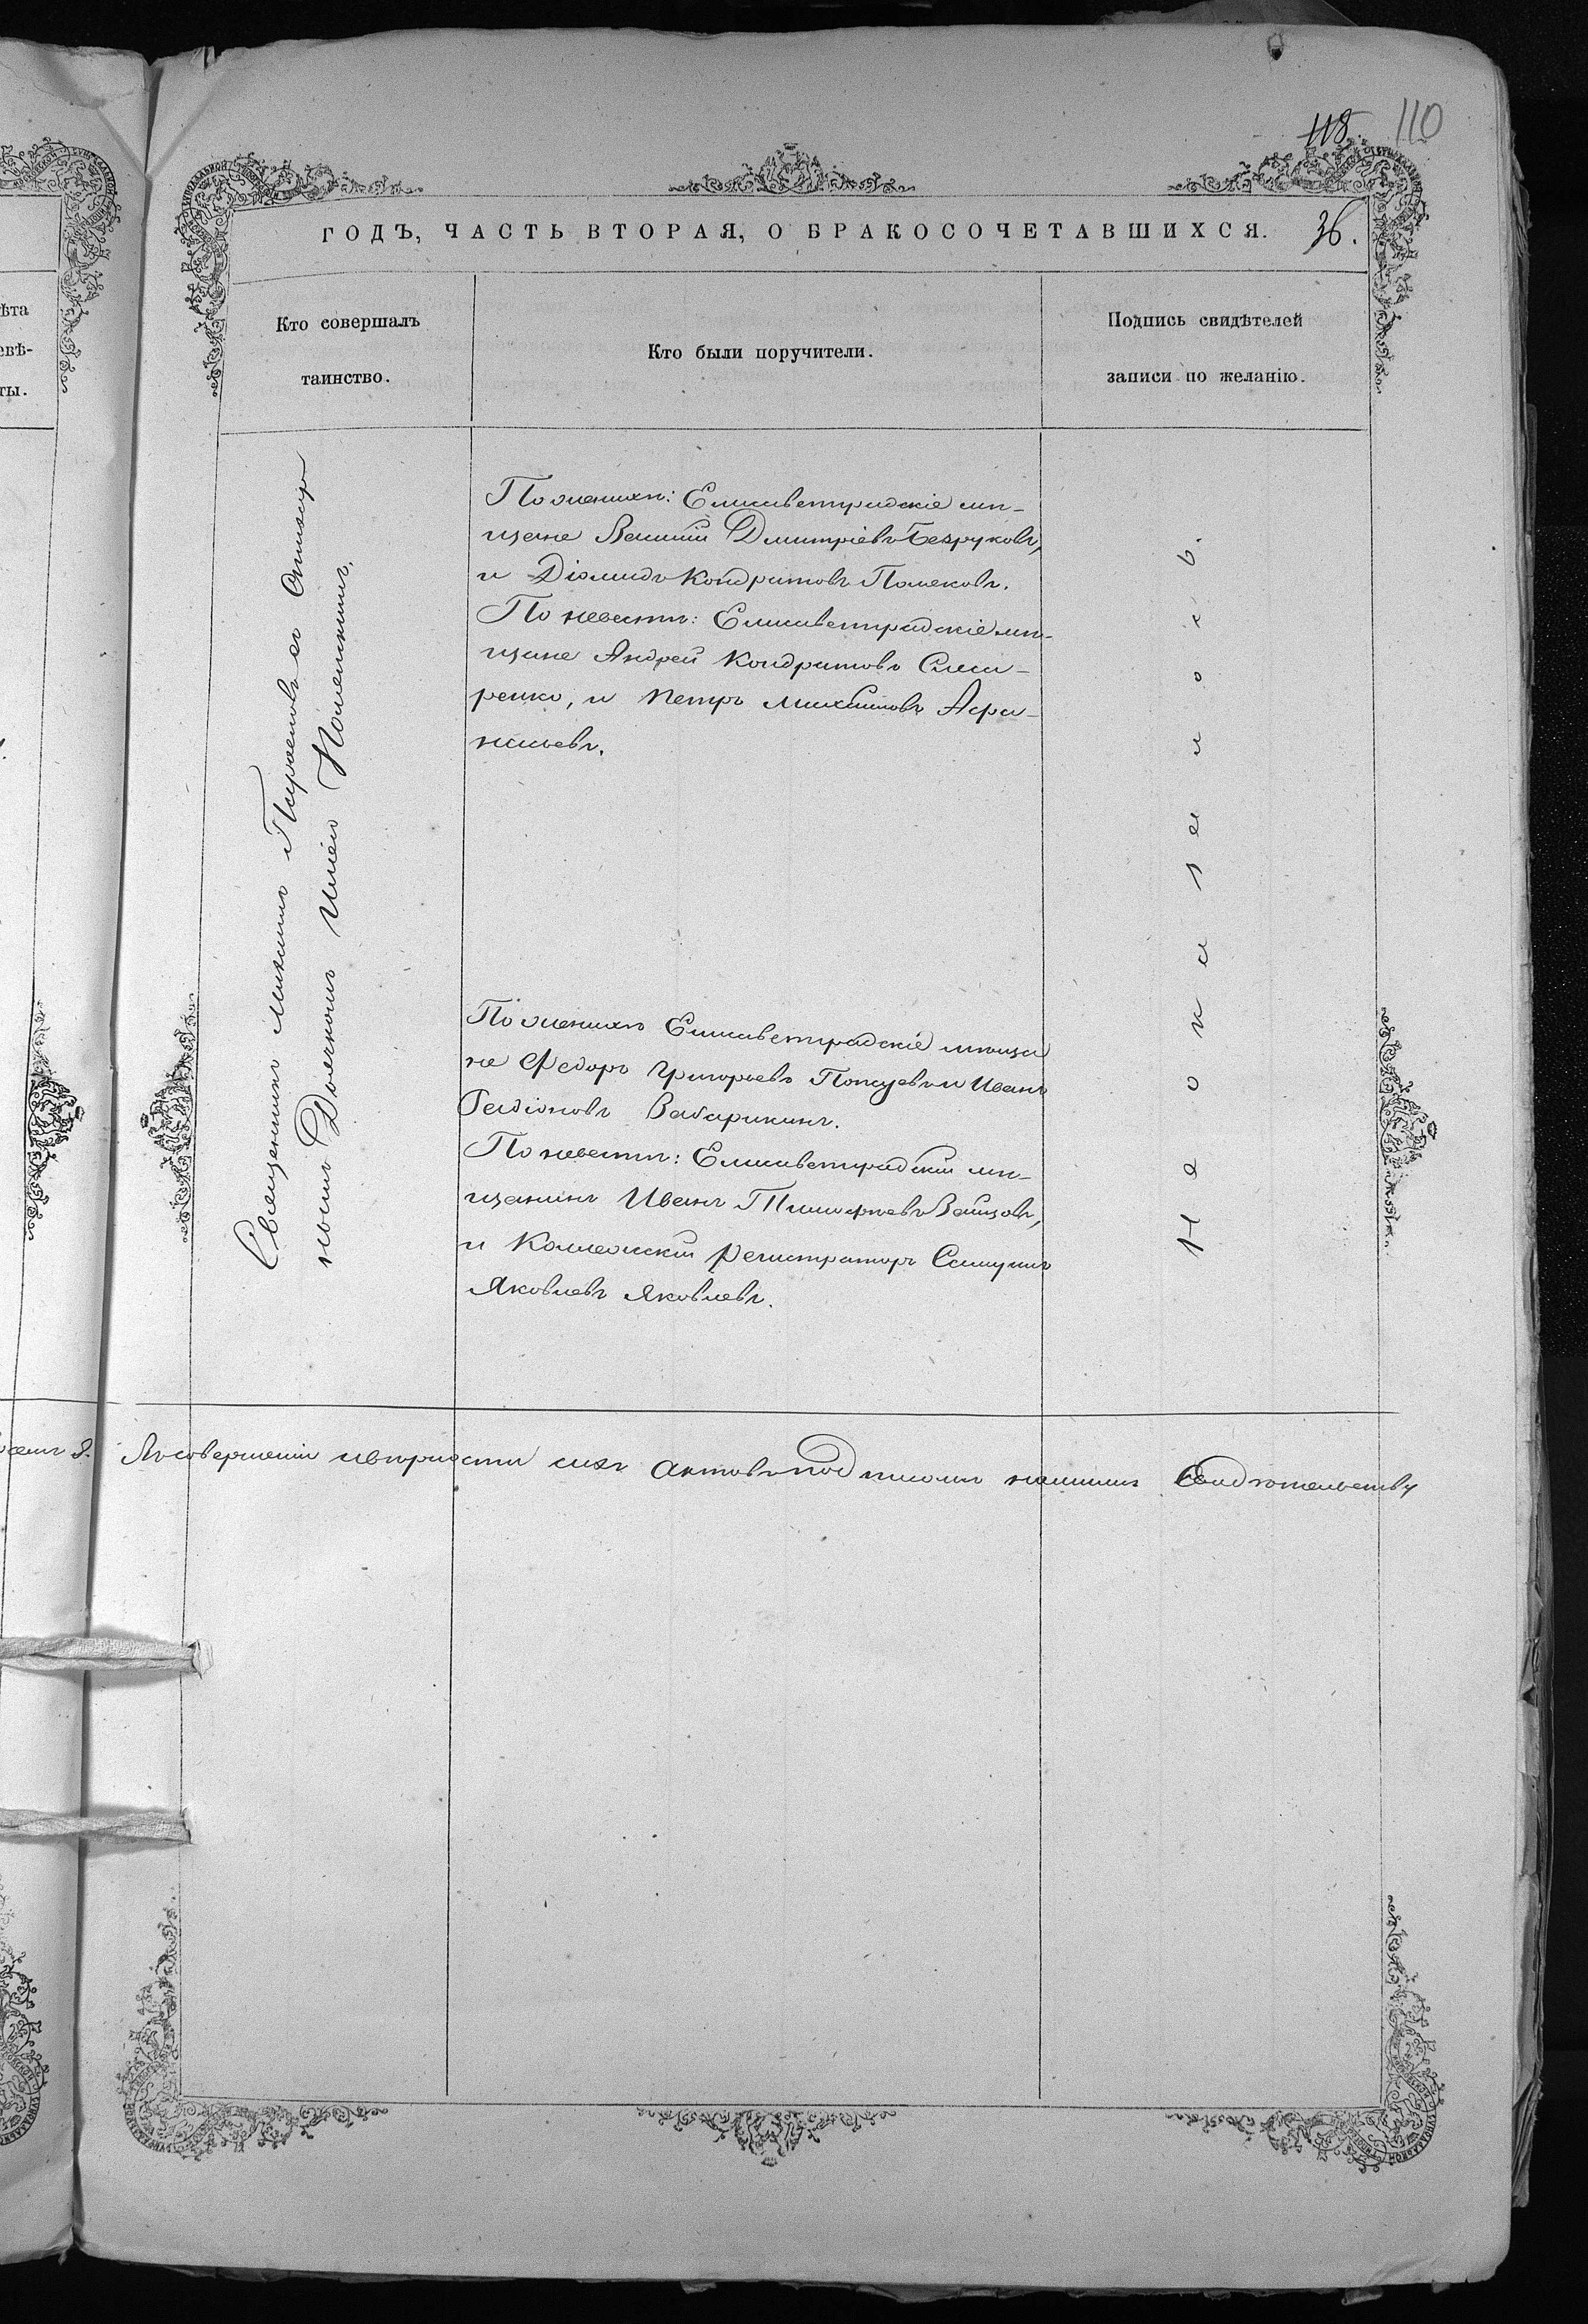 118. 110
ГОДЪ, ЧАСТЬ ВТОРАЯ, О БРАКОСОЧЕТАВШИХСЯ. 36.
ѣта
евѣ-
ты.
Кто совершалъ
таинство.
Кто были поручители.
Подпись свидѣтелей
записи по желанію.
Священникъ Михаилъ съ
нымъ Іліею
По женихѣ: Елисаветградскіе мѣ-
щане Василій Дмитріевъ Безруковъ,
и Діомидъ Кондратовъ Поляковъ.
По невѣстѣ: Елисаветградскіе мѣ-
щане Андрей Кондратовъ Слюса-
ренко, и Петръ Михаиловъ Афа-
насьевъ.
По женихѣ Елисаветградскіе мѣща
не Федоръ Григорьевъ и Иванъ
Родіоновъ
По невѣстѣ: Елисаветградскій мѣ-
щанинъ Иванъ Тимофѣевъ
и Коллежскій Регистраторъ
Яковлевъ Яковлевъ.
Не оказалось.
совершеніи и вѣрности сихъ актовъ подписомъ нашимъ свидѣтельству